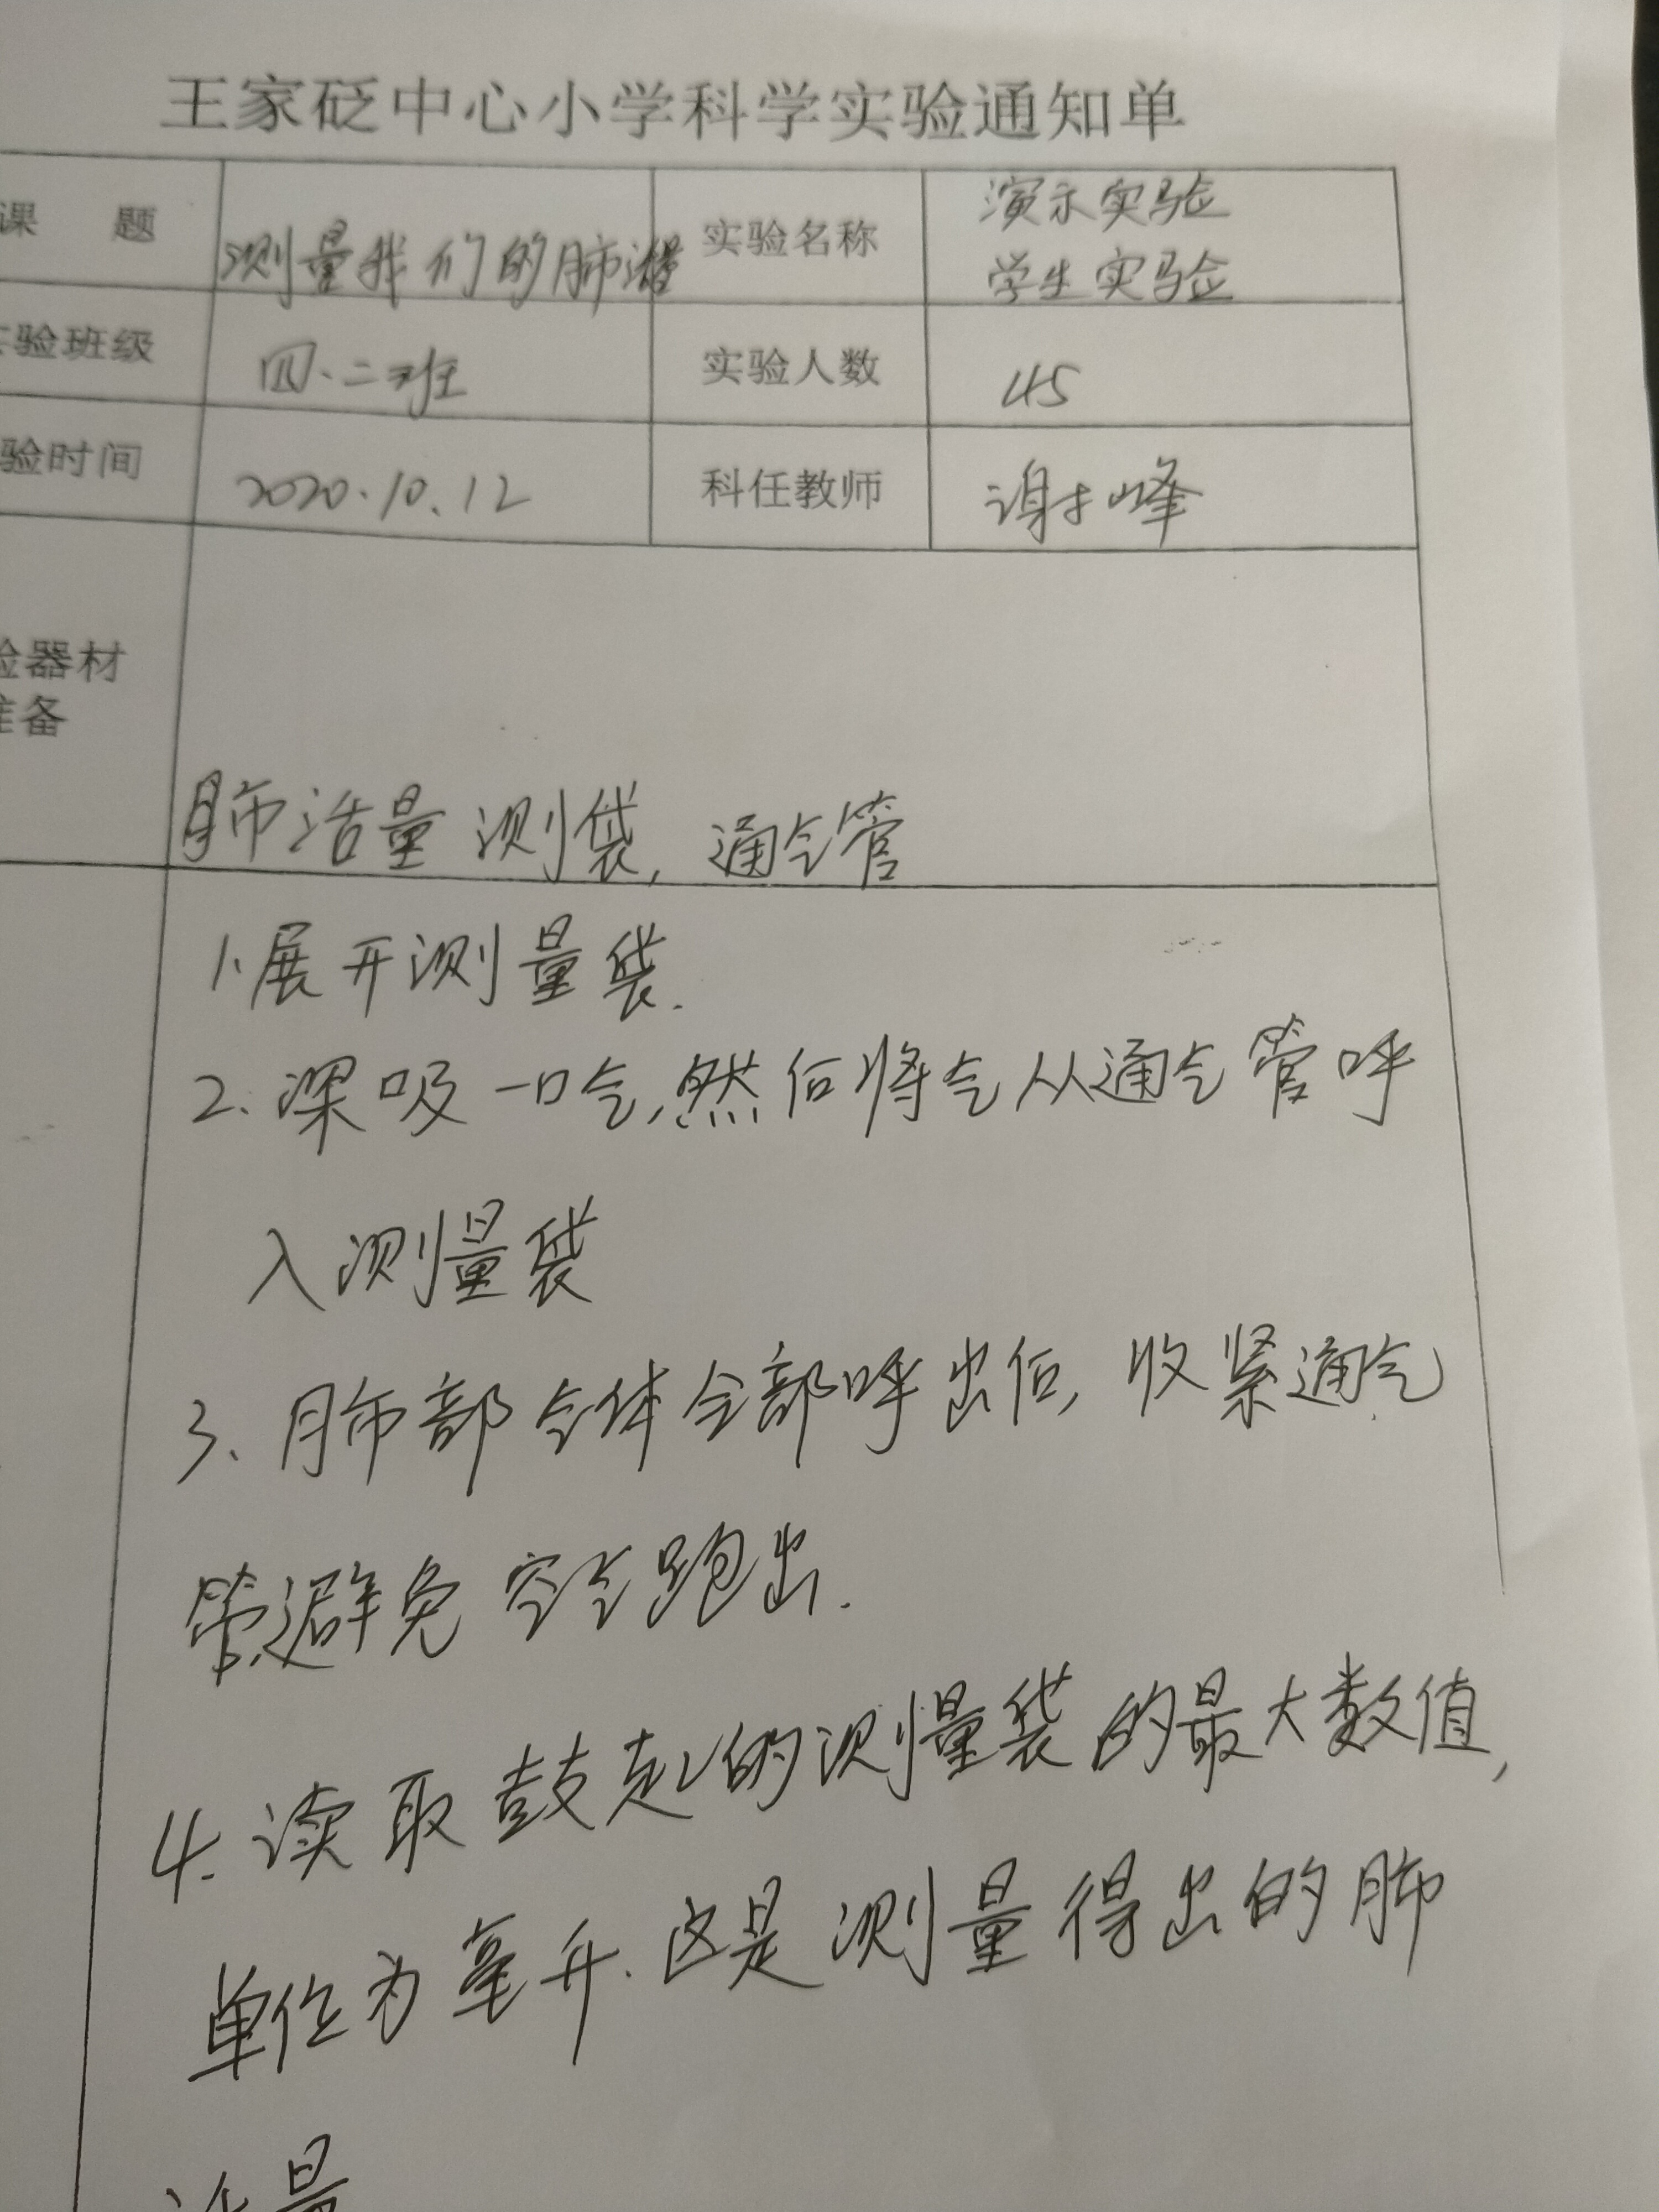 王家砭中心小学科学实验通知单
课 题 测量我们的肺活量 实验名称 演示实验
学生实验
验班级 四.二班 实验人数 45
验时间 2020.10.12 科任教师 谢峰
器材
备
肺活量 测袋, 通气管
1.展开测量袋.
2.深吸一口气,然后将气从通气管呼
入测量袋
3、肺部气体全部呼出后, 收紧通气
管,避免空气跑出.
4.读取鼓起的测量袋的最大数值,
单位为毫升.这是测量得出的肺
活量